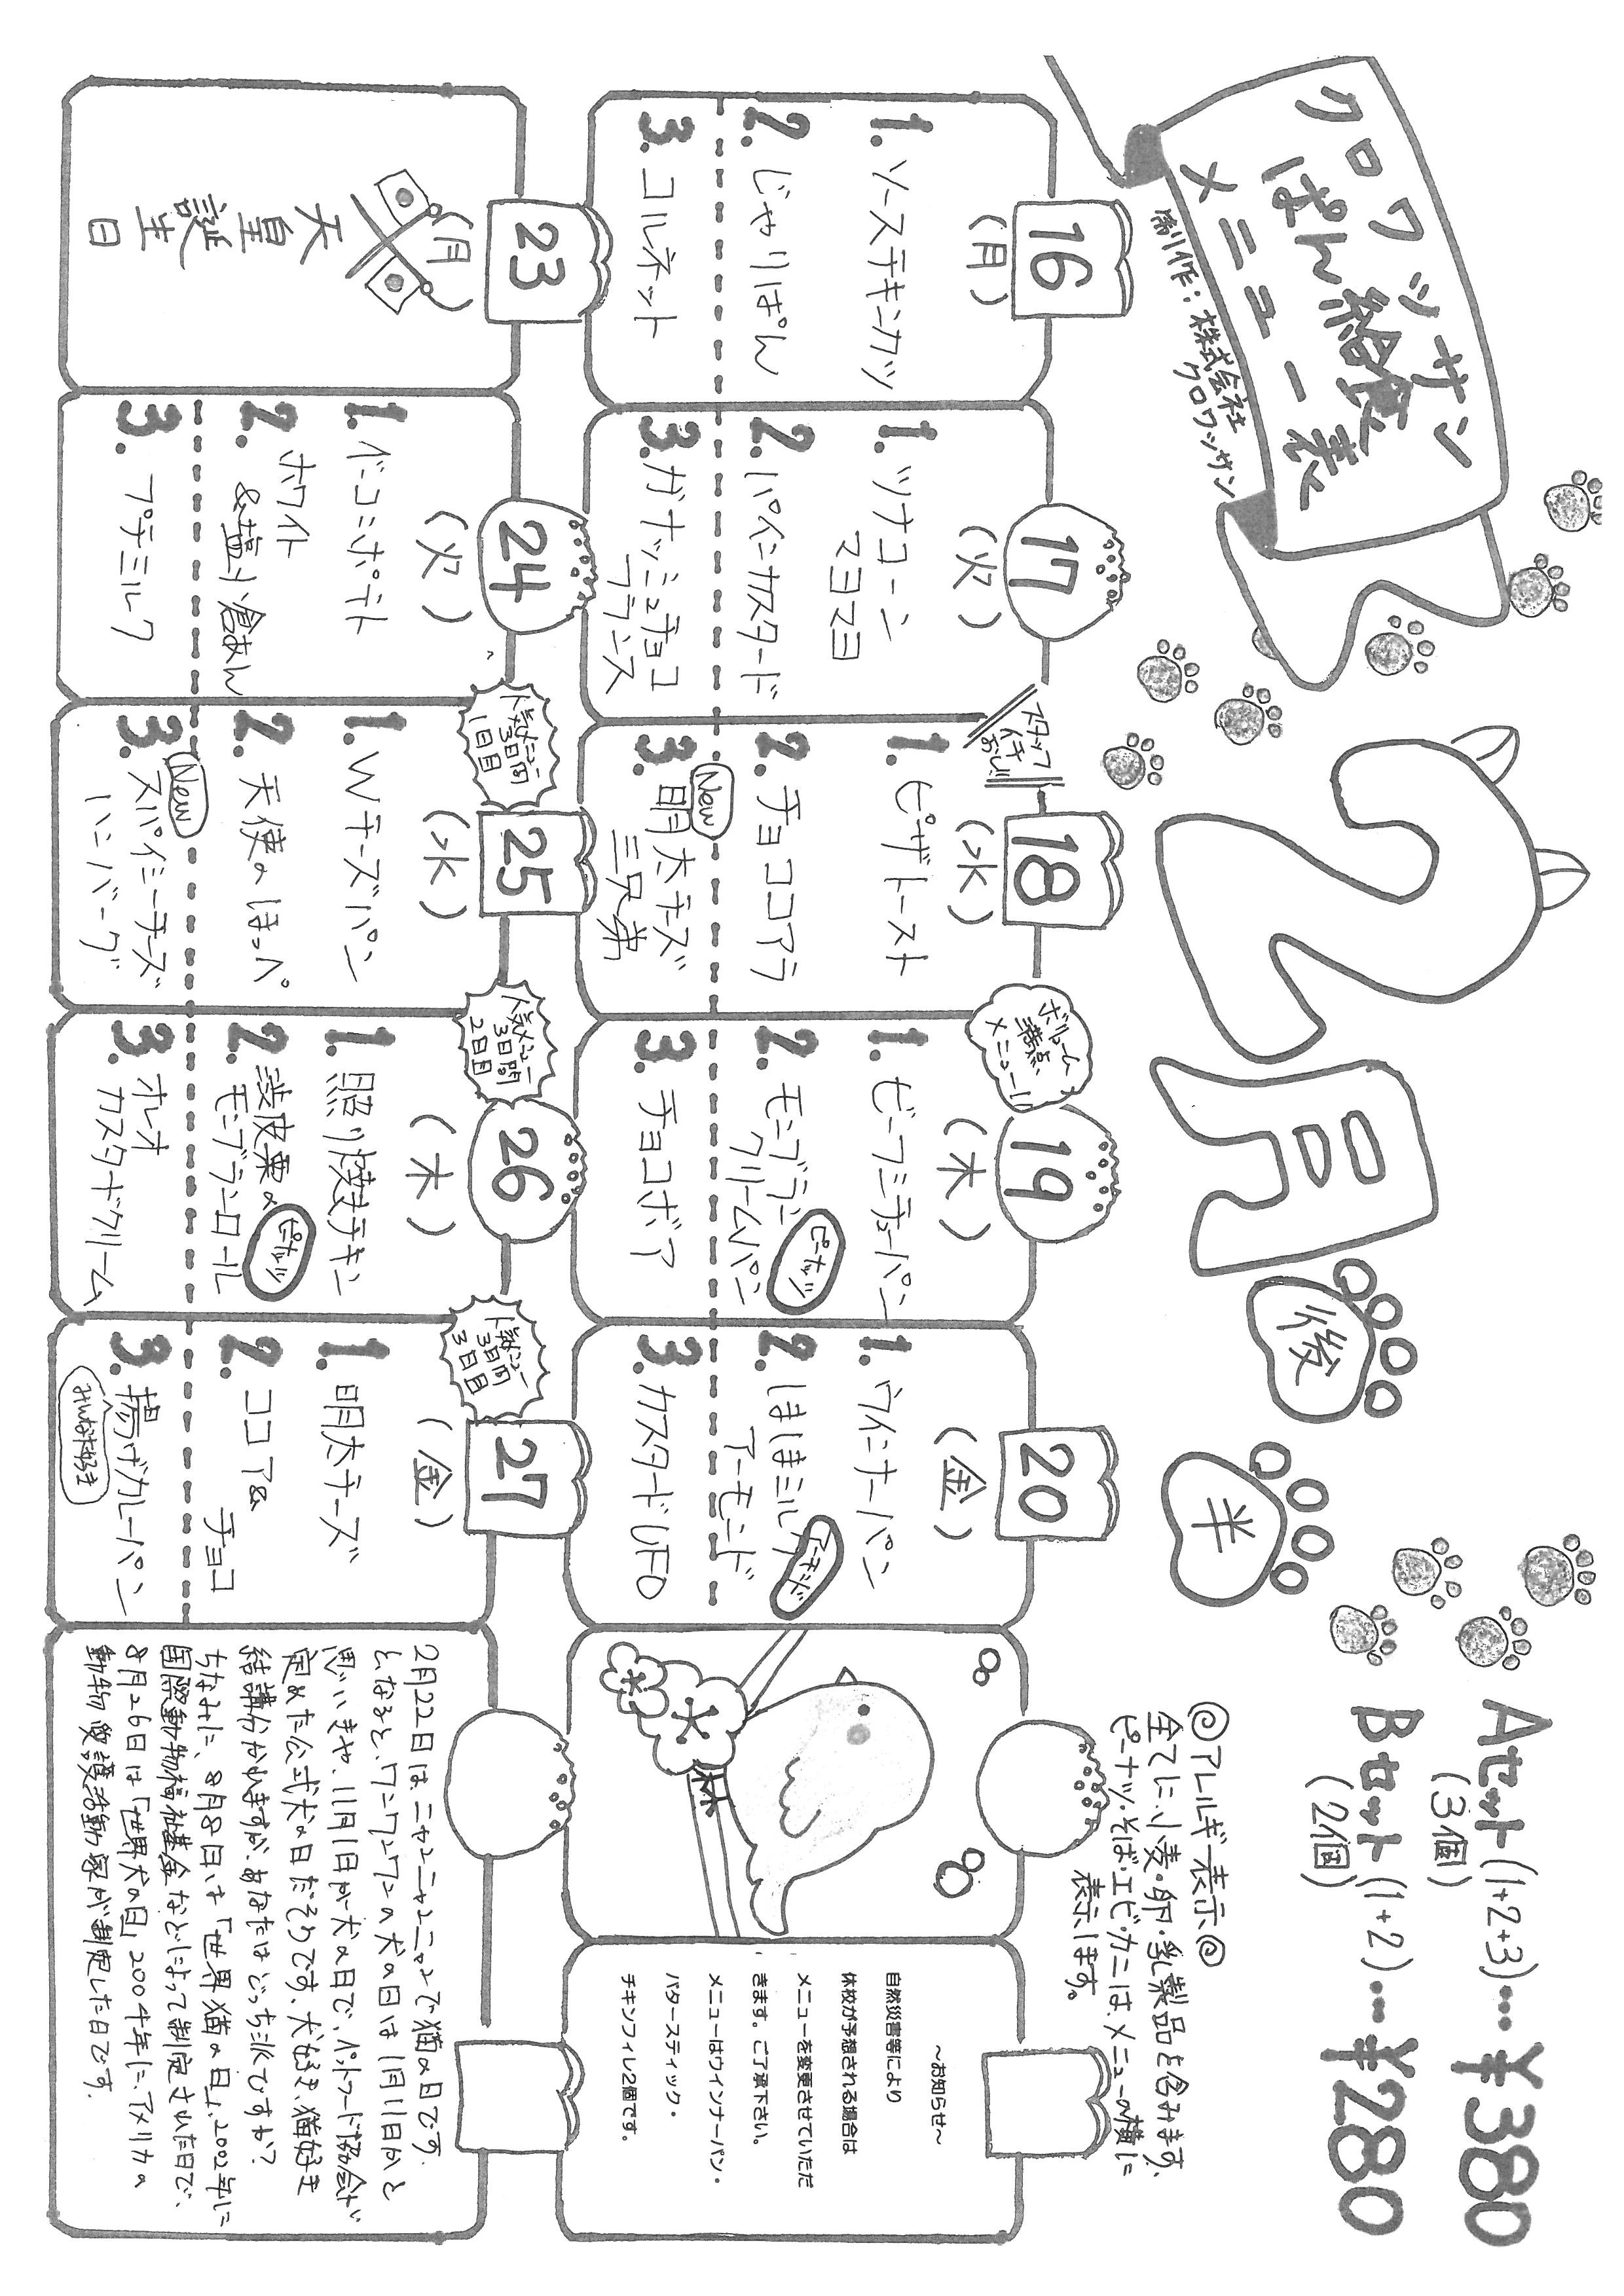 クロワッサン
ぱん給食
メニュー表
制作:株式会社
クロワッサン
2月
後
半
Aセット(1+2+3)…¥380
(3個)
Bセット(1+2)…¥280
(2個)
◎アレルギー表示◎
全てに、小麦・卵・乳製品を含みます。
ピーナッツ・そば・エビ・カニは、メニューの横に
表示します。
16
(月)
1.ソースチキンカツ
2.じゃりぱん
3.コルネット
17
(火)
1.ツナコーン
マヨマヨ
2.パインカスタード
3.ガナッシュチョコ
フランス
スタッフ
イチ
おし!!
18
(水)
1.ピザトースト
2.チョココアラ
New
3.明太チーズ
三兄弟
ボリューム
満点
メニュー!!
19
(木)
1.ビーフシチューパン
2.モンブラン
クリームパン
ピーナッツ
3.チョコボア
20
(金)
1.ウインナーパン
2.しましまミルク
アーモンド
アーモンド
3.カスタードUFO
~お知らせ~
自然災害等により
休校が予想される場合は
メニューを変更させていただ
きます。ご了承下さい。
メニューはウインナーパン・
バタースティック・
チキンフィレ2個です。
23
(月)
天皇
誕生
日
24
(火)
1.ベーコンポテト
2.ホワイト
&塩小倉あん
3.プチミルク
人気メニュー
3日間
1日目
25
(水)
1.Wチーズパン
2.天使のほっぺ
New
3.スパイシーチーズ
ハンバーグ
人気メニュー
3日間
2日目
26
(木)
1.照り焼きチキン
2.渋皮栗の
モンブランロール
ピーナッツ
3.オレオ
カスタードクリーム
人気メニュー
3日間
3日目
27
(金)
1.明太チーズ
2.ココア&
チョコ
3.揚げカレーパン
みんな大好き
2月22日は、ニャンニャンニャンで猫の日です。
となると、ワンワンワンの犬の日は1月11日かと
思いきや、11月1日が犬の日で、ペットフード協会が
定めた公式犬の日だそうです。犬好き、猫好き
結講分かれますが、あなたはどっち派ですか?
ちなみに、8月8日は「世界猫の日」、2002年に
国際動物福祉基金などによって制定された日で、
8月26日は「世界犬の日」2004年に、アメリカの
動物愛護活動家が制定した日です。